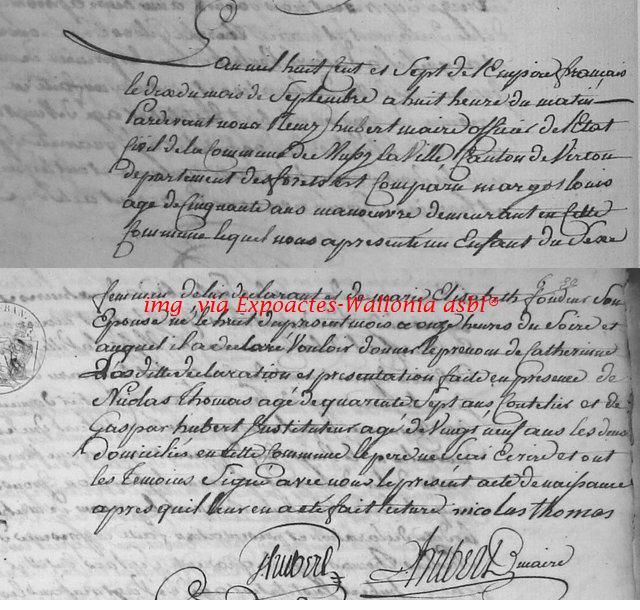 L'an mil huit Cent et Sept de l'Empire français
le dix du mois de Septembre a huit heure du matin
Pardevant nous henry hubert maire officier de l'Etat
Civil de la Commune de Mussy la Ville Canton de Virton
departement des forets est Comparu margos louis
age de Cinquante ans manœuvre demeurant en Cette
Commune lequel nous a presenté un Enfant du Sexe
feminin de lui declarant et de marie Elisabeth fondeur Son
img via Expoactes-Wallonia asbl®
Epouse né le huit du present mois a onze heures du Soire et
auquel il a declaré Vouloir donner le prenom de Catherinne
Lasditte declaration et presentation faite en presence de
Nicolas thomas agé de quarente Sept ans Coutelier et de
Gaspar hubert Instituteur agé de Vingt neuf ans les deux
domiciliés en Cette Commune le pere ne Scas Ecrire et ont
les temoins Signé avec nous le present acte de naissance
apres qu'il leur en a été fait lecture nicolas thomas
hubert hubert maire